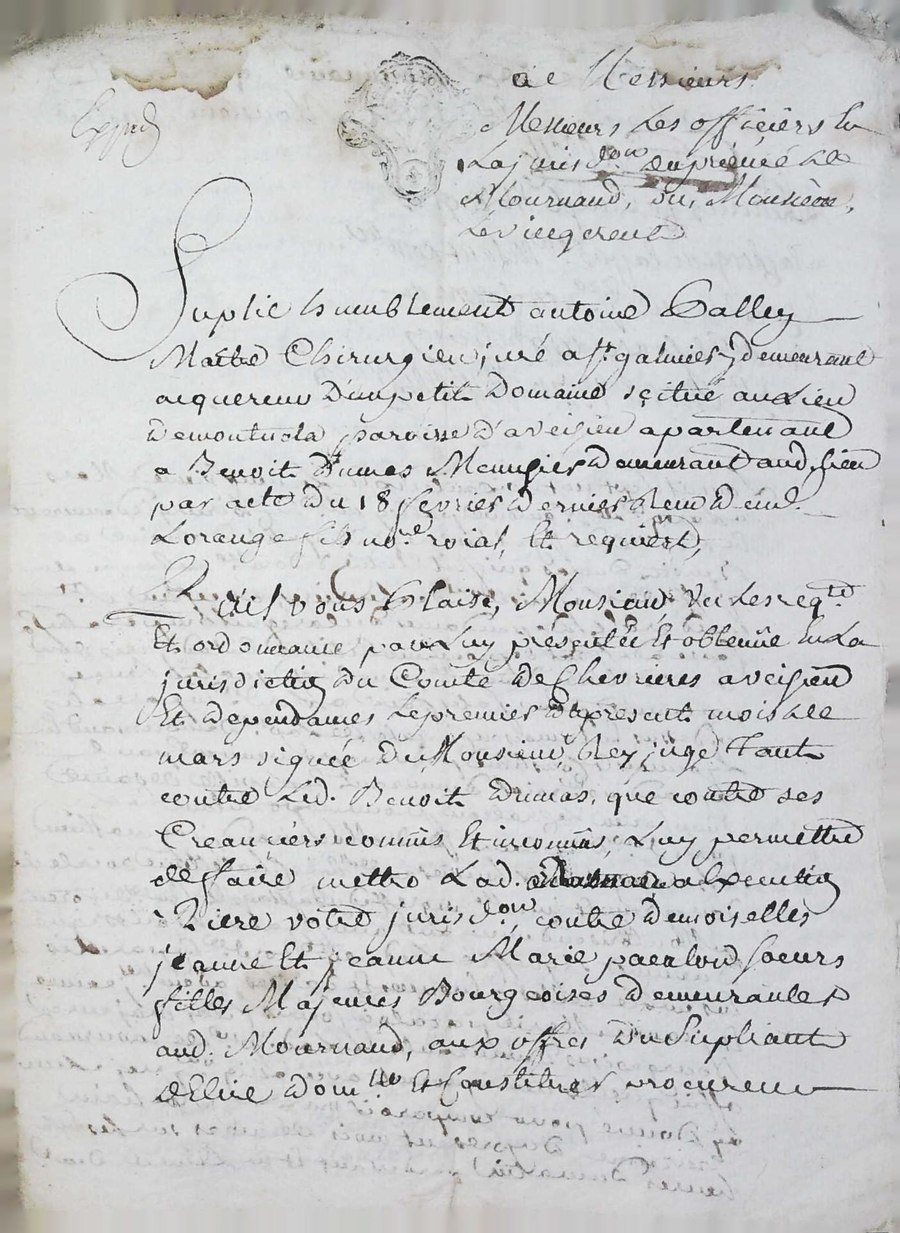 A Messieurs
Messieurs Les officiers En
La jurisd.on du prieuré de
Mournand, ou, Monsieur,
Le vicegerent
Suplie humblement antoine
Maitre Chirurgien juré a St. galmier y demeurant
acquereur d'un petit Domaine scitué au Lieu
parroisse d'aveisieu apartenant
a Benoit Dumas Meusnier demeurant aud. Lieu
par acte du 18 fevrier dernier Receu d'eud.
Lorange fils no.re roial, Et requiert,
Qu'il vous Plaise, Monsieur Vu Les req.te
Et ordonnance par Luy présentée Et obtenüe En La
jurisdiction du Comté de Chevrieres aveisieu
Et dependances Le premier du present mois de
mars signée de Monsieur Rey juge tant
contre Led. Benoit dumas, que contre ses
Creanciers connus Et inconnus, Luy permettre
de faire mettre Lad. a Execution
Riere votre jurisd.on contre demoiselles
jeanne Et jeanne Marie soeurs
filles Majeures Bourgeoises demeurantes
aud. Mournand, aux offres du Supliant
d'Elire dom.lle Et Constituer procureur